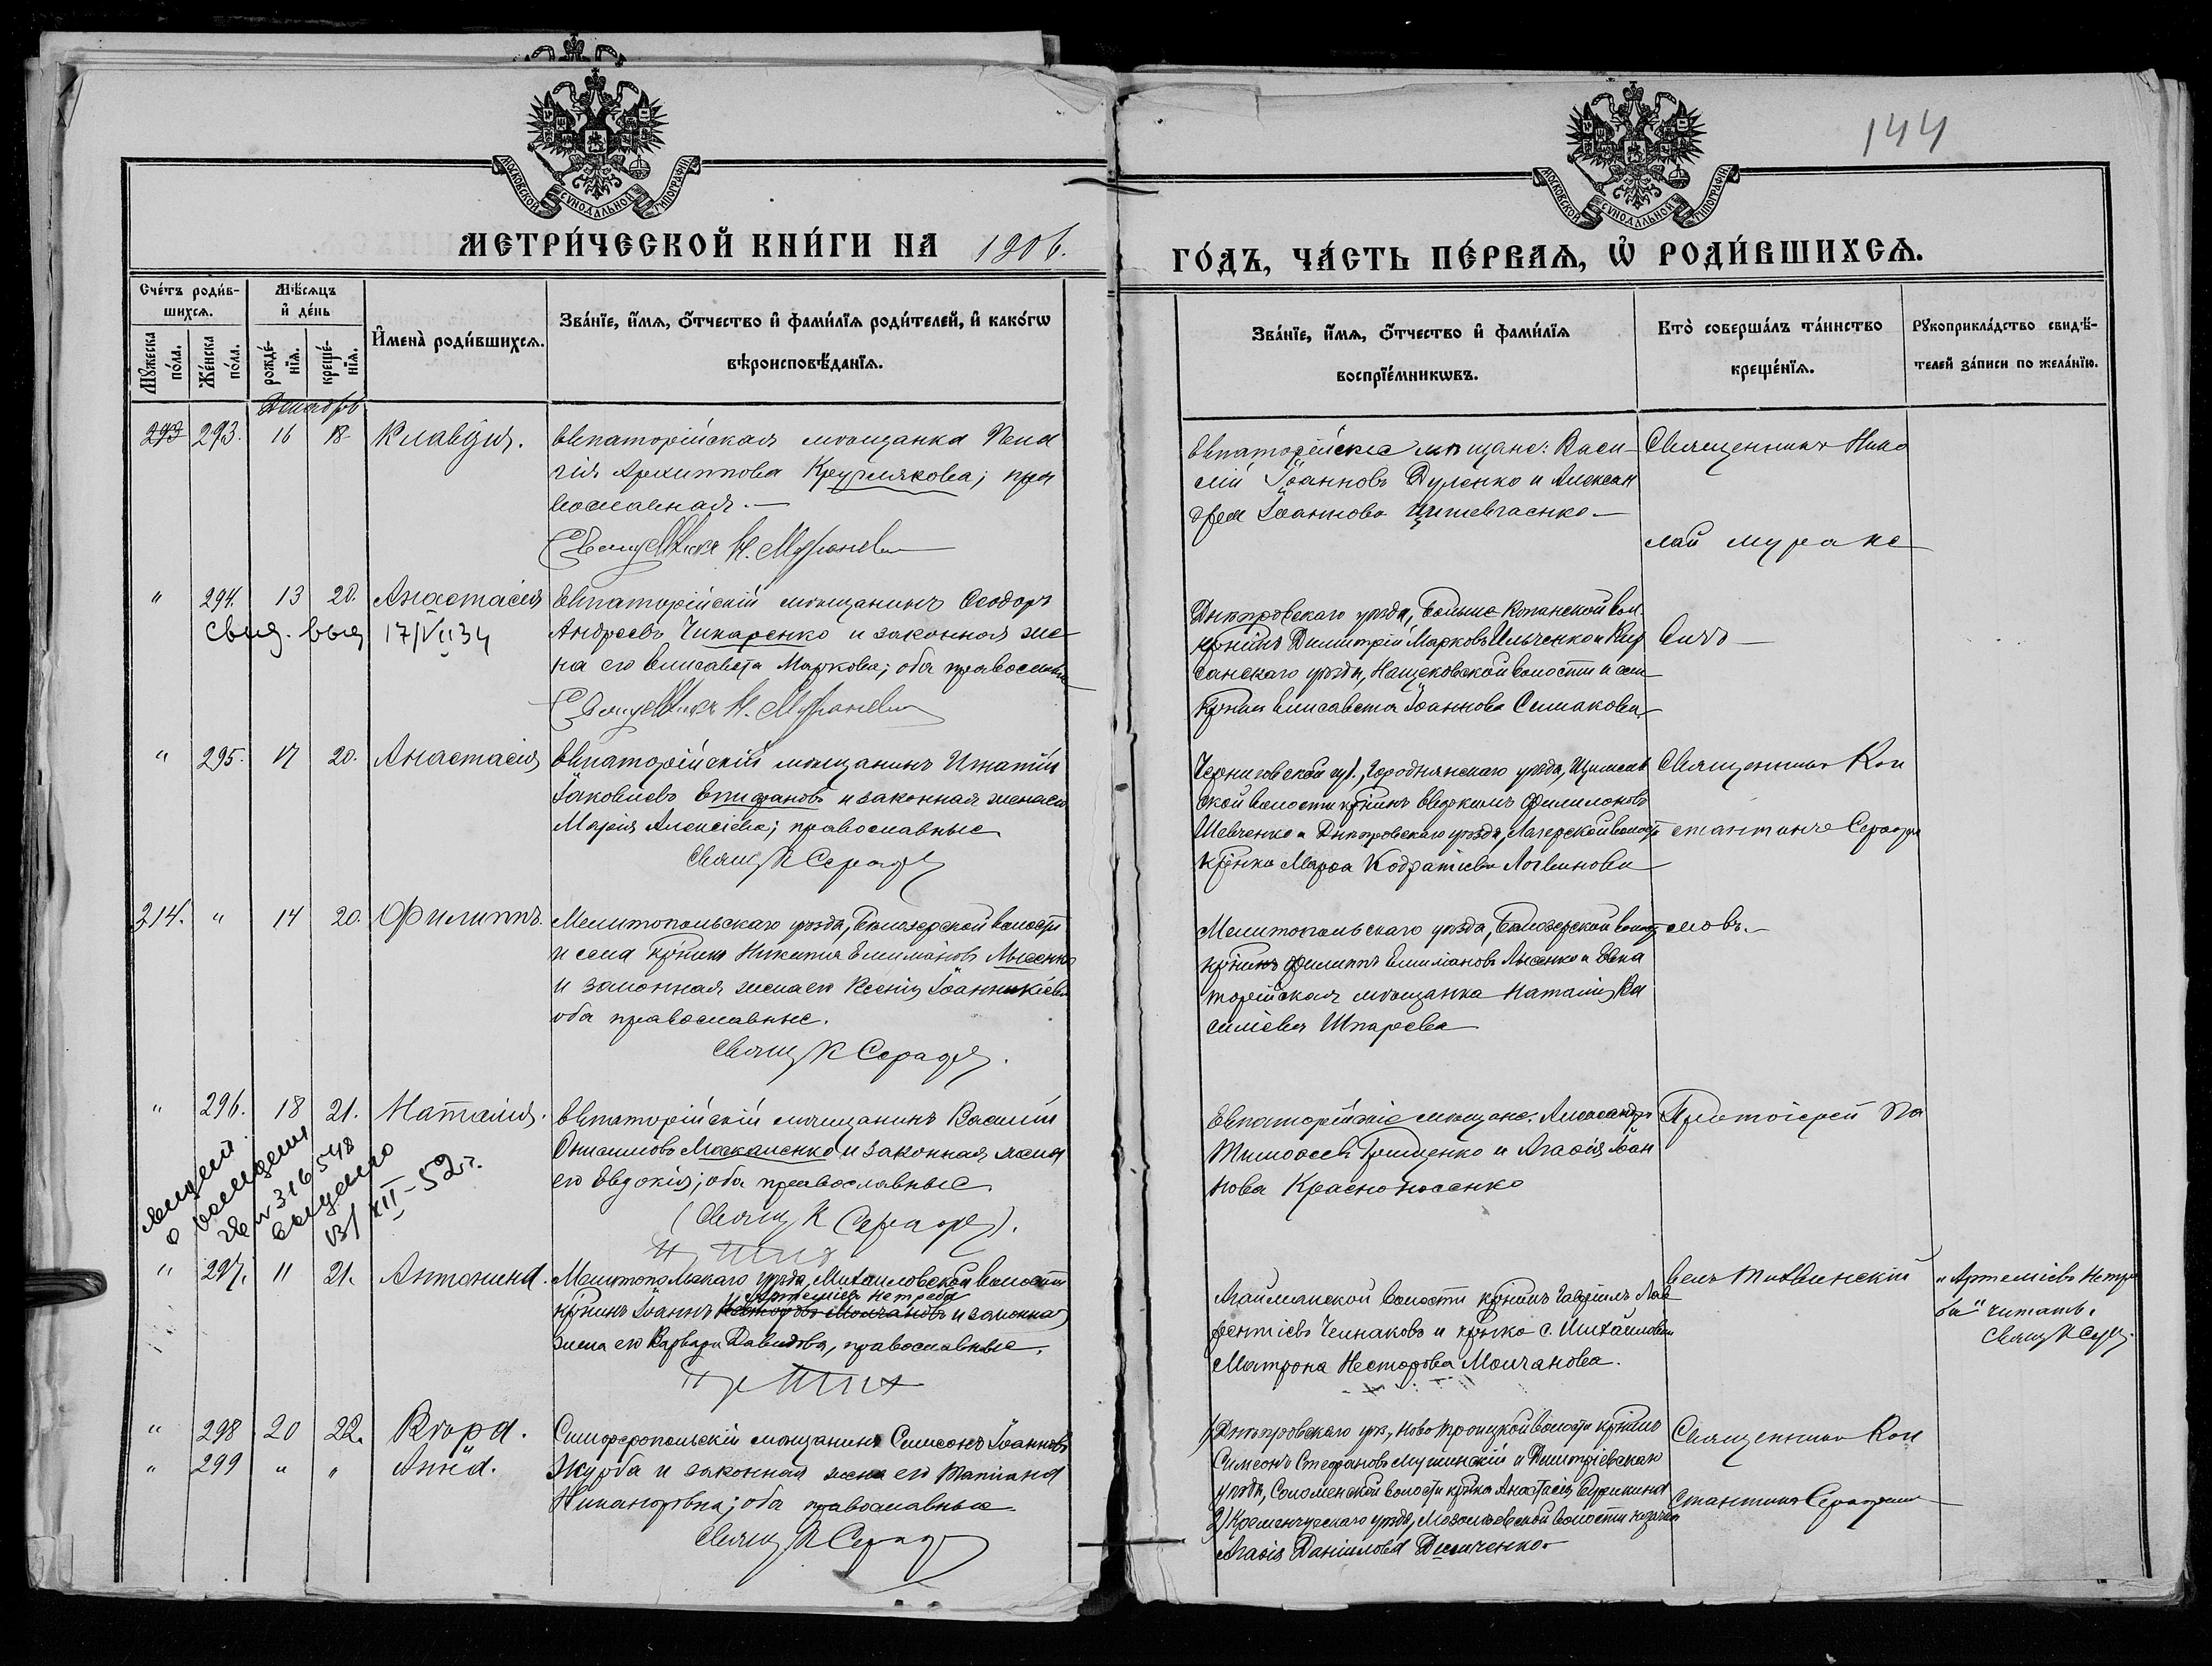 144
МОСКОВСКОЙ СУНОДАЛЬНОЙ ТИПОГРАФІИ
МОСКОВСКОЙ СУНОДАЛЬНОЙ ТИПОГРАФІИ
МЕТРИ́ЧЕСКОЙ КНИ́ГИ НА 1906.
ГО́ДЪ, ЧА́СТЬ ПЕ́РВАЯ, Ѡ҆ РОДИ́ВШИХСЯ.
Сче́тъ роди́в-
шихся.
Мужеска по́ла.
Же́нска по́ла.
Мѣ́сяцъ
и҆ де́нь
рожде́-
нїя.
креще́-
нїя.
И҆мена̀ роди́вшихся.
Зва́нїе, и҆́мя, ѻ҆́тчество и҆ фами́лїя роди́телей, и҆ како́гѡ
вѣроисповѣ́данїя.
Зва́нїе, и҆́мя, ѻ҆́тчество и҆ фами́лїя
воспрїе́мникѡвъ.
Кто̀ соверша́лъ та́инство
креще́нїя.
Рꙋкоприкла́дство свидѣ́-
телей за́писи по жела́нїю.
Декабрь
293 293. 16 18. Клавдія.
Евпаторійская мѣщанка Пела
гія Архиппова Круглякова; пра
вославная.—
Священникъ Н.
Евпаторійскіе мѣщане: Васи-
лій Іоанновъ Дуленко и Алексан
дра Іоаннова
Священникъ Нико
лай Мура
" 294. 13 20. Анастасія
Свид. выд 17/VII 34
Евпаторійскій мѣщанинъ Ѳеодоръ
Андреевъ Чикаренко и законная же
на его Елисавета Маркова; оба православн
Священникъ Н.
Днѣпровскаго уѣзда, Больше Копанской вол.
крнинъ Димитрій Марковъ Ильченко и
уѣзда, волости и села
Елисавета Іоаннова Симакова
" 295. 17 20. Анастасія
Евпаторійскій мѣщанинъ Игнатій
Іаковлевъ Епифановъ и законная жена его
Марія Алексіева; православные
Свящ. К Сераф
Черниговской губ., Городнянскаго уѣзда,
ской волости крнинъ Евдокимъ Филимоновъ
Шевченко и Днѣпровскаго уѣзда, волости
Марѳа Логвинова
Священникъ Кон
стантинъ Серафи
мовъ.—
214. " 14 20. Филиппъ.
Мелитопольскаго уѣзда, Бѣлозерской волости
и села крнинъ Никита Емиліановъ Лысенко
и законная жена его Ксенія Іоанникіева
оба православные.
Свящ К Сераф.
Мелитопольскаго уѣзда, Бѣлозерской волости
крнинъ Филиппъ Емиліановъ Лысенко и Евпа
торійская мѣщанка Наталія Ва
силіева Шпарева
" 296. 18 21. Наталія.
о рождении
№ 316548
выдано
13/XII-52г.
Евпаторійскій мѣщанинъ Василій
Онисимовъ Москаленко и законная жена
его Евдокія; оба православные
(Свящ К Сераф).
Евпаторійскіе мѣщане: Александръ
Тимоѳеевъ Грищенко и Агаѳія Іоан
нова Красноносенко
Протоіерей Па
велъ Тихвинскій
" 297. 11 21. Антонина.
Мелитопольскаго уѣзда, Михайловской волости
Артеміевъ Нетреба
крнинъ Іоаннъ Несторовъ Молчановъ и законная
жена его Варвара Давидова, православные.
Агайманской волости крнинъ Гавріилъ Лав
рентіевъ Чепнаковъ и с. Михайловки
Матрона Несторова Молчанова.
"Артеміевъ Нетре
ба" читать.
Свящ К Сер
" 298 20 22. Кира.
" 299 " " Анна.
Симферопольскій мѣщанинъ Симеонъ Іоанновъ
Журба и законная жена его Татіана
Никаноровна; оба православные
Свящ К Сераф
1) Днѣпровскаго уѣз, Ново Троицкой волости крнинъ
Симеонъ Стефановъ Мушинскій и Дмитріевскаго
уѣзда, Соломенской волости Анастасія
2) Кременчугскаго уѣзда, волости
Агаѳія Даніилова Диличенко.
Священникъ Кон
стантинъ Серафимовъ